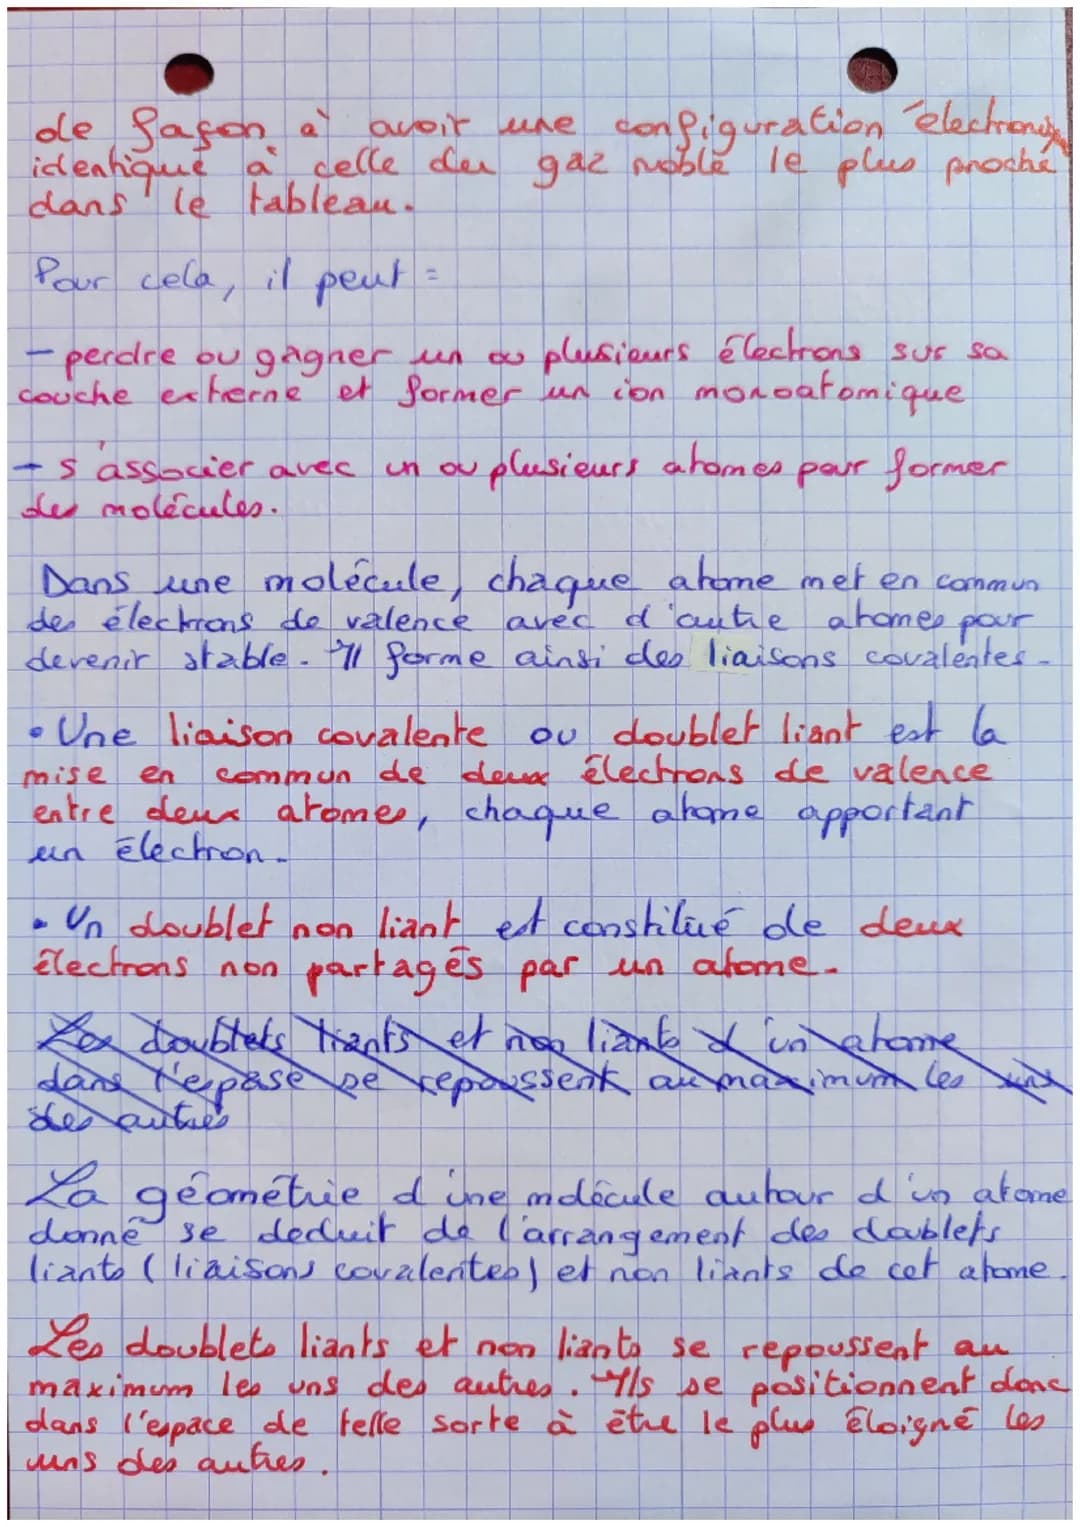 de façon à avoir une configuration électroniq
identique à celle du gaz noble le plus proche
dans le tableau.
Pour cela, il peut =
- perdre ou gagner un ou plusieurs électrons sur sa
couche externe et former un ion monoatomique
- s'associer avec un ou plusieurs atomes pour former
des molécules.
Dans une molécule, chaque atome met en commun
des électrons de valence avec d'autre atomes pour
devenir stable. Il forme ainsi des liaisons covalentes.
• Une liaison covalente ou doublet liant est la
mise en commun de deux électrons de valence
entre deux atomes, chaque atome apportant
un électron.
• Un doublet non liant est constitué de deux
électrons non partagés par un atome.
Les doublets liants et non liants d'un atome
dans l'espase se repoussent au maximum les uns
des autres
La géométrie d'une molécule autour d'un atome
donné se deduit de l'arrangement des doublets
liants (liaisons covalentes) et non liants de cet atome.
Les doublets liants et non liants se repoussent au
maximum les uns des autres. Ils se positionnent donc
dans l'espace de telle sorte à être le plus éloigné les
uns des autres.